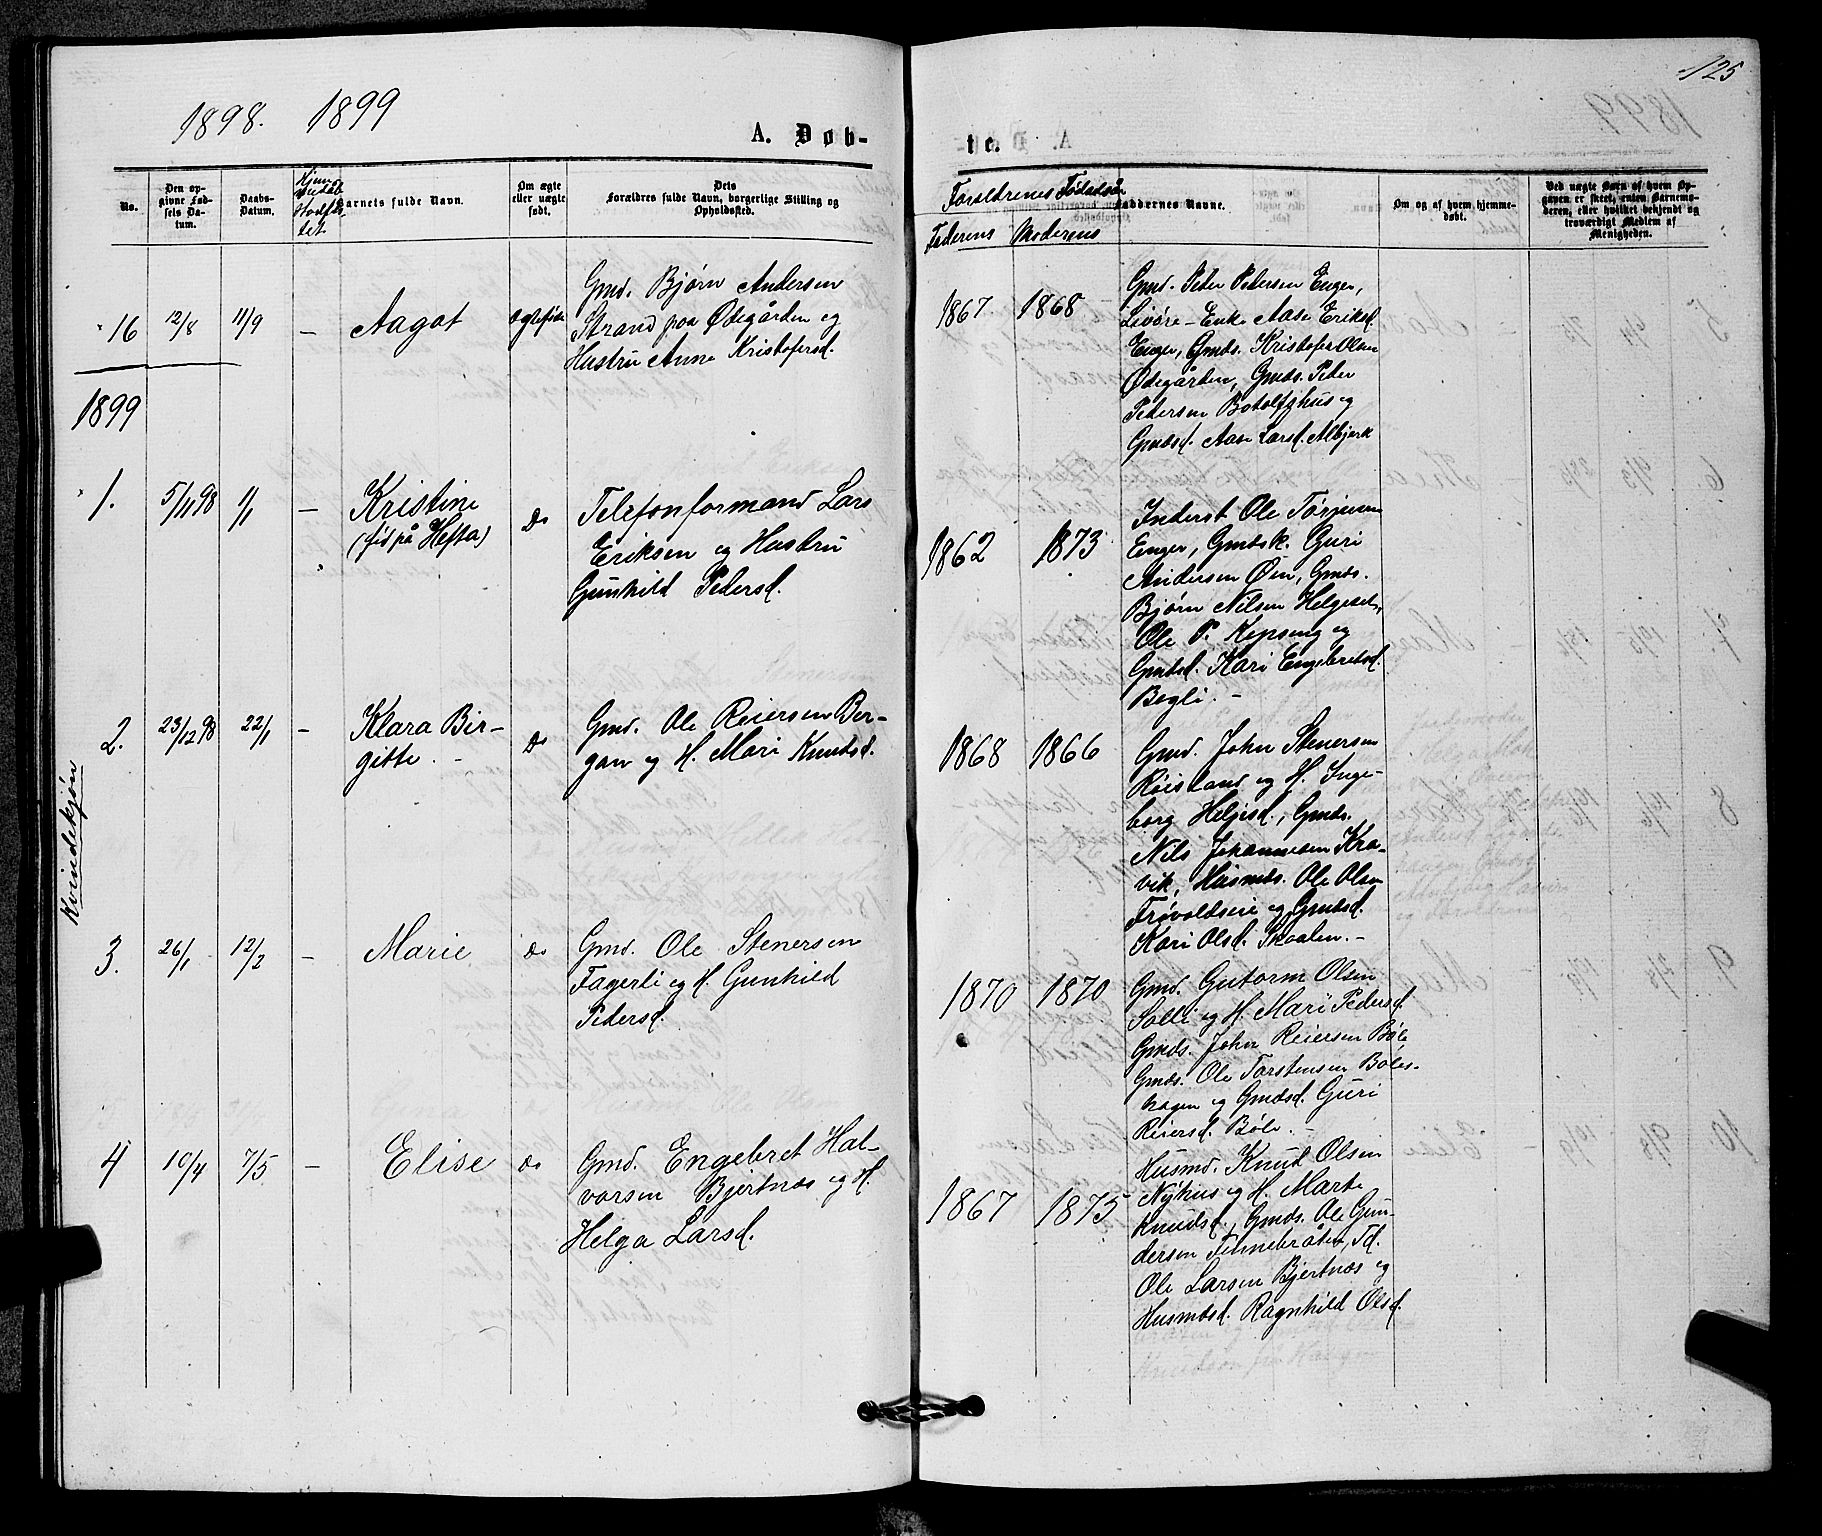 125
1898. 1899
A. Døb-
te.
No.
Den op-
givne Fød-
sels Da-
tum.
Daabs-
Datum.
Barnets fulde Navn.
Om ægte
eller uægte
født.
Dets
Forældres fulde Navn, borgerlige Stilling og
Opholdssted.
Forældrenes Fødselsår
Faderens Moderens
Faddernes Navne.
Om og af hvem hjemme-
døbt.
Ved uægte Børn af hvem Op-
gaven er skeet, enten Barnemo-
deren, eller hvilket bekjendt og
troværdigt Medlem af
Menigheden.
16 12/8 11/9 – Aagot ægtefød
Gmd. Bjørn Andersen
Strand paa Ødegården og
Hustru Anne Kristofersd.
1867 1868
Gmd. Peder Pedersen Enger,
Livøre-Enke Aase Eriksd.
Enger, Gmds. Kristofer Olsen
Ødegården, Gmds. Peder
Pedersen Botolfshus og
Gmdsd. Aase Larsd. Albjerk
1899
Kvindekjøn
1. 5/11 98 1/1 – Kristine
(fød på Hefta)
Do
Telefonformand Lars
Eriksen og Hustru
Gunhild Pedersd.
1862 1873
Inderst Ole Torjusen
Enger, Gmdsk. Guri
Andersen Øen, Gmds.
Bjørn Nilsen Helgeset,
Ole P. Kepseng og
Gmdsd. Kari Engebretsd.
Begli. –
2. 23/12 98 22/1 – Klara Bir-
gitte. –
Do
Gmd. Ole Reiersen Ber-
gan og H. Mari Knudsd.
1868 1866
Gmd. John Stenersen
Røisland og H. Inge-
borg Helgisd., Gmds.
Nils Johannesen Kra-
vik, Husmds. Ole Olsen
Frøvoldseie og Gmdsd.
Kari Olsd. Skaalen. –
3. 26/1 12/2 – Marie do
Gmd. Ole Stenersen
Fagerli og H. Gunhild
Pedersd.
1870 1870
Gmd. Gutorm Olsen
Solli og H. Mari Pedersd.
Gmds. John Reiersen Bøle,
Gmds. Ole Torstensen Boles-
hagen og Gmdsd. Guri
Reiersd. Bøle. –
4 10/4 7/5 – Elise do
Gmd. Engebret Hal-
vorsen Bjertnæs og H.
Helga Larsd.
1867 1875
Husmd. Knud Olsen
Nyhus og H. Marte
Knudsd., Gmds. Ole Gun-
dersen Tinnebråten, Td.
Ole Larsen Bjertnæs og
Husmdsd. Ragnhild Olsd.